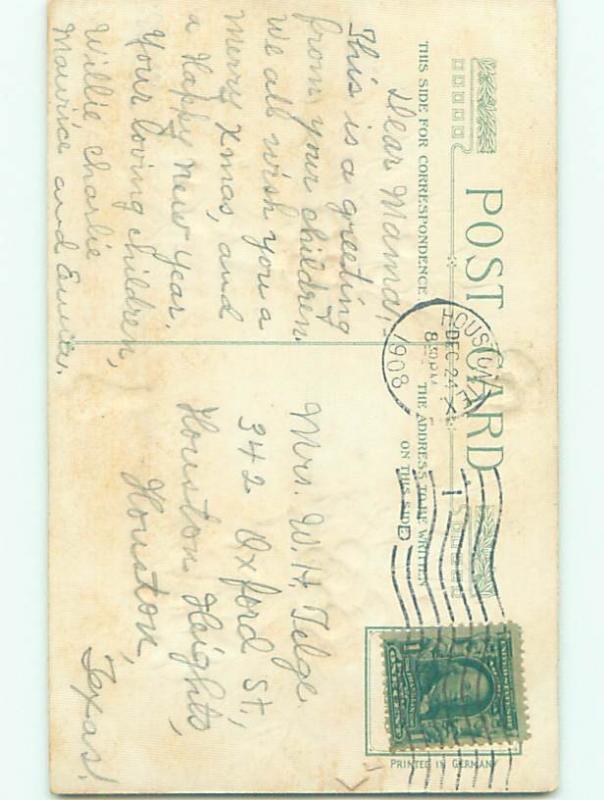 POST CARD
THIS SIDE FOR CORRESPONDENCE
THE ADDRESS TO BE WRITTEN
ON THIS SIDE
HOUSTON, TEX
DEC 24
8 30 PM
1908
Dear Mama,
This is a greeting
from your children.
We all wish you a
Merry Xmas, and
a Happy New Year.
Your loving children,
Willie Charlie
Maurice and
Mrs. W.H. Tilge
342 Oxford St.,
Houston Heights,
Houston,
Texas!
PRINTED IN GERMANY